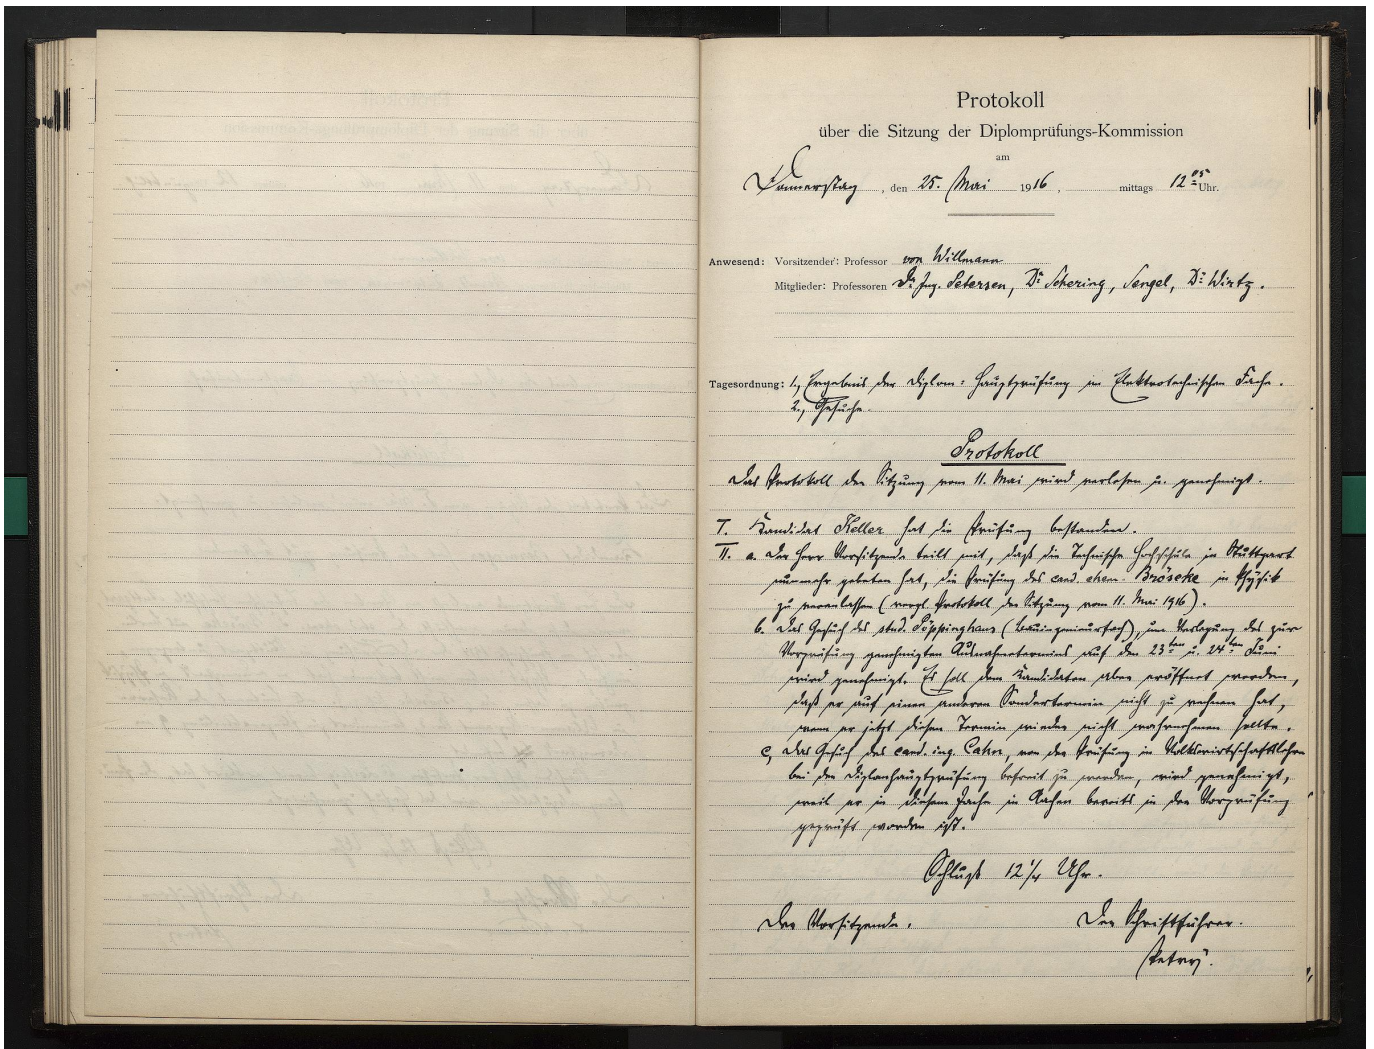 Protokoll
über die Sitzung der Diplomprüfungs-Kommission
am
Donnerstag, den 25. Mai 1916, mittags 12 05 Uhr.
Anwesend: Vorsitzender: Professor von Willmann
Mitglieder: Professoren Dr. Ing. Petersen, Dr. Schering, Sengel, Dr. Wirtz.
Tagesordnung: 1., Ergebnis der Diplom-Hauptprüfung im Elektrotechnischen Fache.
2., Gesuche.
Protokoll
Das Protokoll der Sitzung vom 11. Mai wird verlesen u. genehmigt.
I. Kandidat Keller hat die Prüfung bestanden.
II. a. Der Herr Vorsitzende teilt mit, daß die Technische Hochschule in Stuttgart
nunmehr gebeten hat, die Prüfung des cand. chem. Bröseke in Physik
zu veranlassen (vergl. Protokoll der Sitzung vom 11. Mai 1916).
b. Das Gesuch des stud. Pöppinghaus (Bauingenieurfach), um Verlegung des zur
Vorprüfung genehmigten Ausnahmetermins auf den 23ten u. 24ten Juni
wird genehmigt. Es soll dem Kandidaten aber eröffnet werden,
daß er auf einen anderen Sondertermin nicht zu rechnen hat,
wenn er jetzt diesen Termin wieder nicht wahrnehmen sollte.
c, Das Gesuch des cand. ing. Cahn, von der Prüfung in Volkswirtschaftslehre
bei der Diplomhauptprüfung befreit zu werden, wird genehmigt,
weil er in diesem Fache in Aachen bereits in der Vorprüfung
geprüft worden ist.
Schluß 12 1/4 Uhr.
Der Vorsitzende. Der Schriftführer.
Petry.